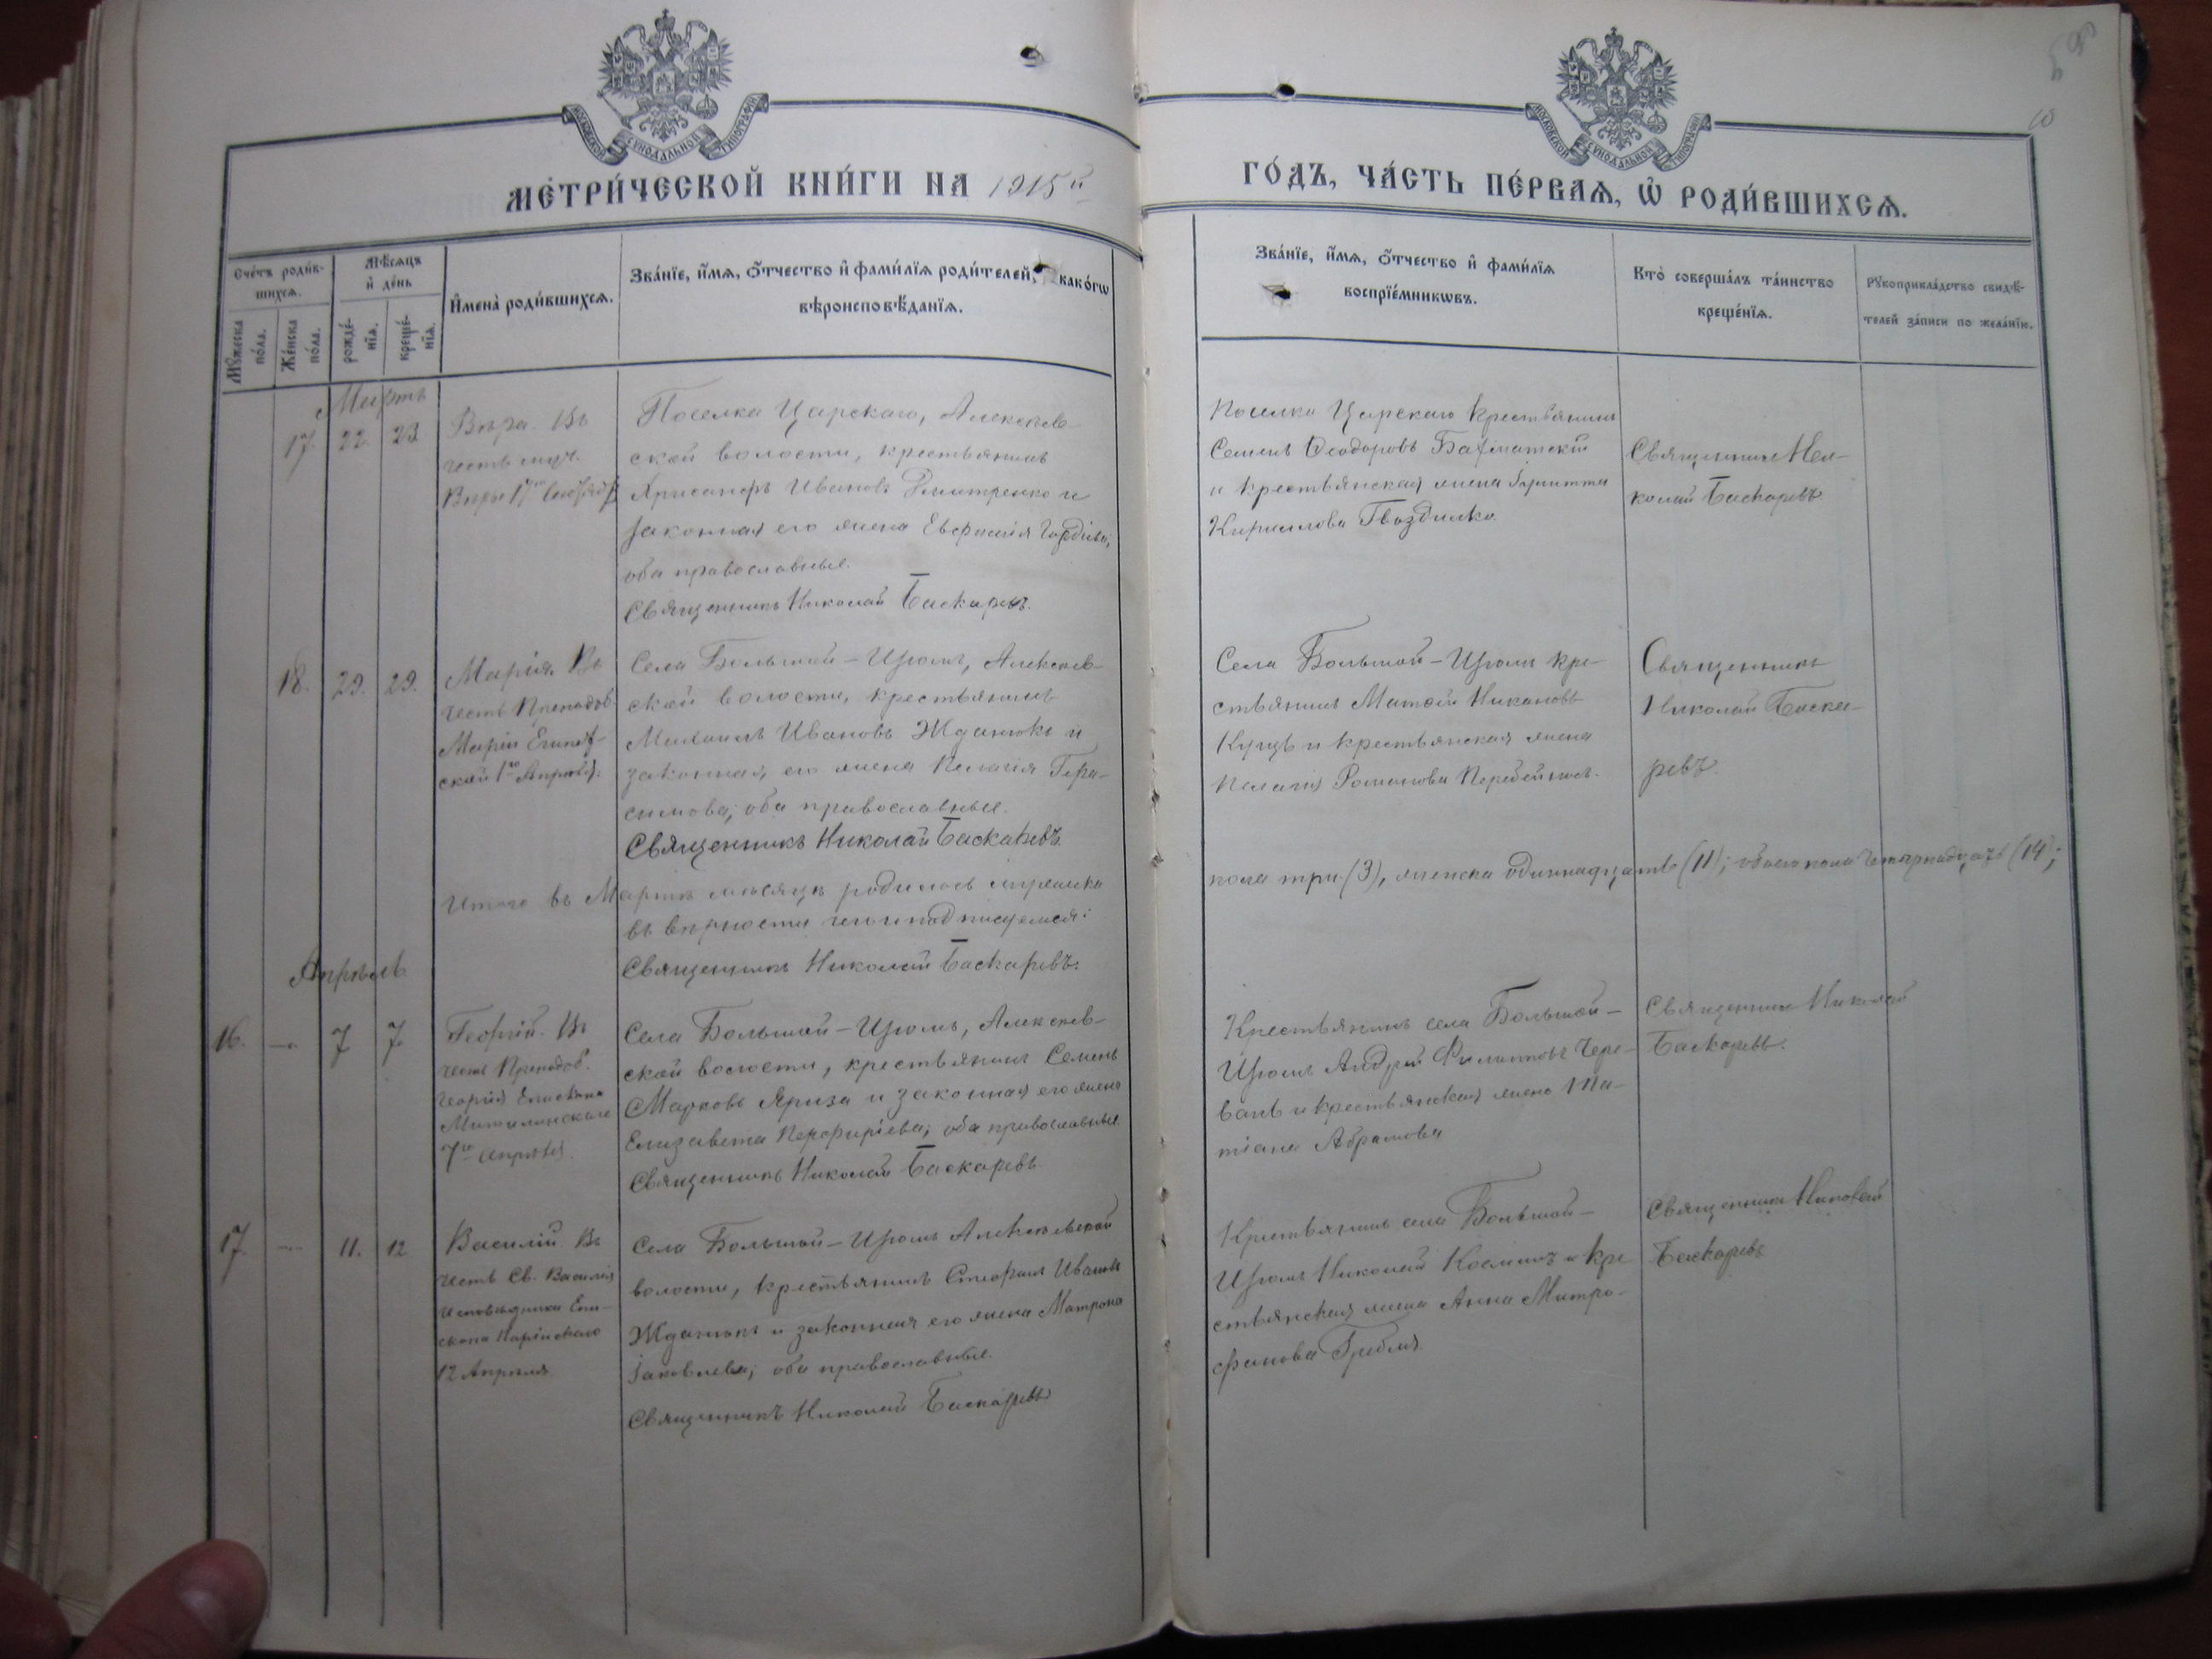 МОСКОВСКОЙ СѴНОДАЛЬНОЙ ТИПОГРАФІИ
МОСКОВСКОЙ СѴНОДАЛЬНОЙ ТИПОГРАФІИ
59
МЕТРИ́ЧЕСКОЙ КНИ́ГИ НА 1915й
ГО́ДЪ, ЧА́СТЬ ПЕ́РВАѦ, Ѡ҆ РОДИ́ВШИХСѦ.
Сче́тъ роди́в-
шихсѧ.
Мѣ́сѧцъ
и҆ де́нь
И҆мена̀ роди́вшихсѧ.
Зва́нїе, и҆́мѧ, ѻ҆́тчество и҆ фами́лїѧ роди́телей, како́гѡ
вѣроисповѣ́данїѧ.
Мꙋ́жеска
по́ла.
Же́нска
по́ла.
рожде́-
нїѧ.
креще́-
нїѧ.
Зва́нїе, и҆́мѧ, ѻ҆́тчество и҆ фами́лїѧ
воспрїе́мникѡвъ.
Кто̀ соверша́лъ та́инство
креще́нїѧ.
Рꙋкоприкла́дство свидѣ́-
телей за́писи по жела́нїю.
Мартъ
17. 22 23
Вѣра. Въ
честь муч.
Вѣры 17го
Поселка Царскаго, Алексѣев-
ской волости, крестьянинъ
Хрисанфъ Ивановъ Дмитренко и
законная его жена Евфимія Гордіева;
оба православные.
Священникъ Николай Баскаревъ.
Поселка Царскаго крестьянинъ
Семенъ Ѳеодоровъ
и крестьянская жена
Кириллова Гвозденко
Священникъ Ни-
колай Баскаревъ
18. 29. 29.
Марія. Въ
честь Преподоб.
Маріи Египет-
ской 1го Апрѣля.
Села Большой-Уромъ, Алексѣев-
ской волости, крестьянинъ
Михаилъ Ивановъ Жданюкъ и
законная его жена Пелагія Гера-
симова; оба православные.
Священникъ Николай Баскаревъ.
Села Большой-Уромъ кре-
стьянинъ Матѳій Никоновъ
Куцъ и крестьянская жена
Пелагія Романова
Священникъ
Николай Баска-
ревъ.
Итого въ Мартѣ мѣсяцѣ родилось мужеска
пола три (3), женска одиннадцать (11); обоего пола четырнадцать (14);
въ вѣрности чего и подписуемся:
Священникъ Николай Баскаревъ.
Апрѣль
16. — 7 7.
Георгій. Въ
честь Преподоб.
Георгія Епископа
Митилинскаго
7го Апрѣля.
Села Большой-Уромъ, Алексѣев-
ской волости, крестьянинъ Семенъ
Марковъ Яриза и законная его жена
Елизавета Перфиріева; оба православные.
Священникъ Николай Баскаревъ
Крестьянинъ села Большой-
Уромъ Андрей Филипповъ Чере-
вань и крестьянская жена Та-
тіана Абрамова
Священникъ Николай
Баскаревъ.
17. — 11. 12
Василій. Въ
честь Св. Василія
Исповѣдника Епи-
скопа Парійскаго
12 Апрѣля.
Села Большой-Уромъ Алексѣевской
волости, крестьянинъ Стефанъ Ивановъ
Жданюкъ и законная его жена Матрона
Іаковлева; оба православные.
Священникъ Николай Баскаревъ
Крестьянинъ села Большой-
Уромъ Николай Косминъ и кре-
стьянская жена Анна Митро-
фанова Гребля
Священникъ Николай
Баскаревъ